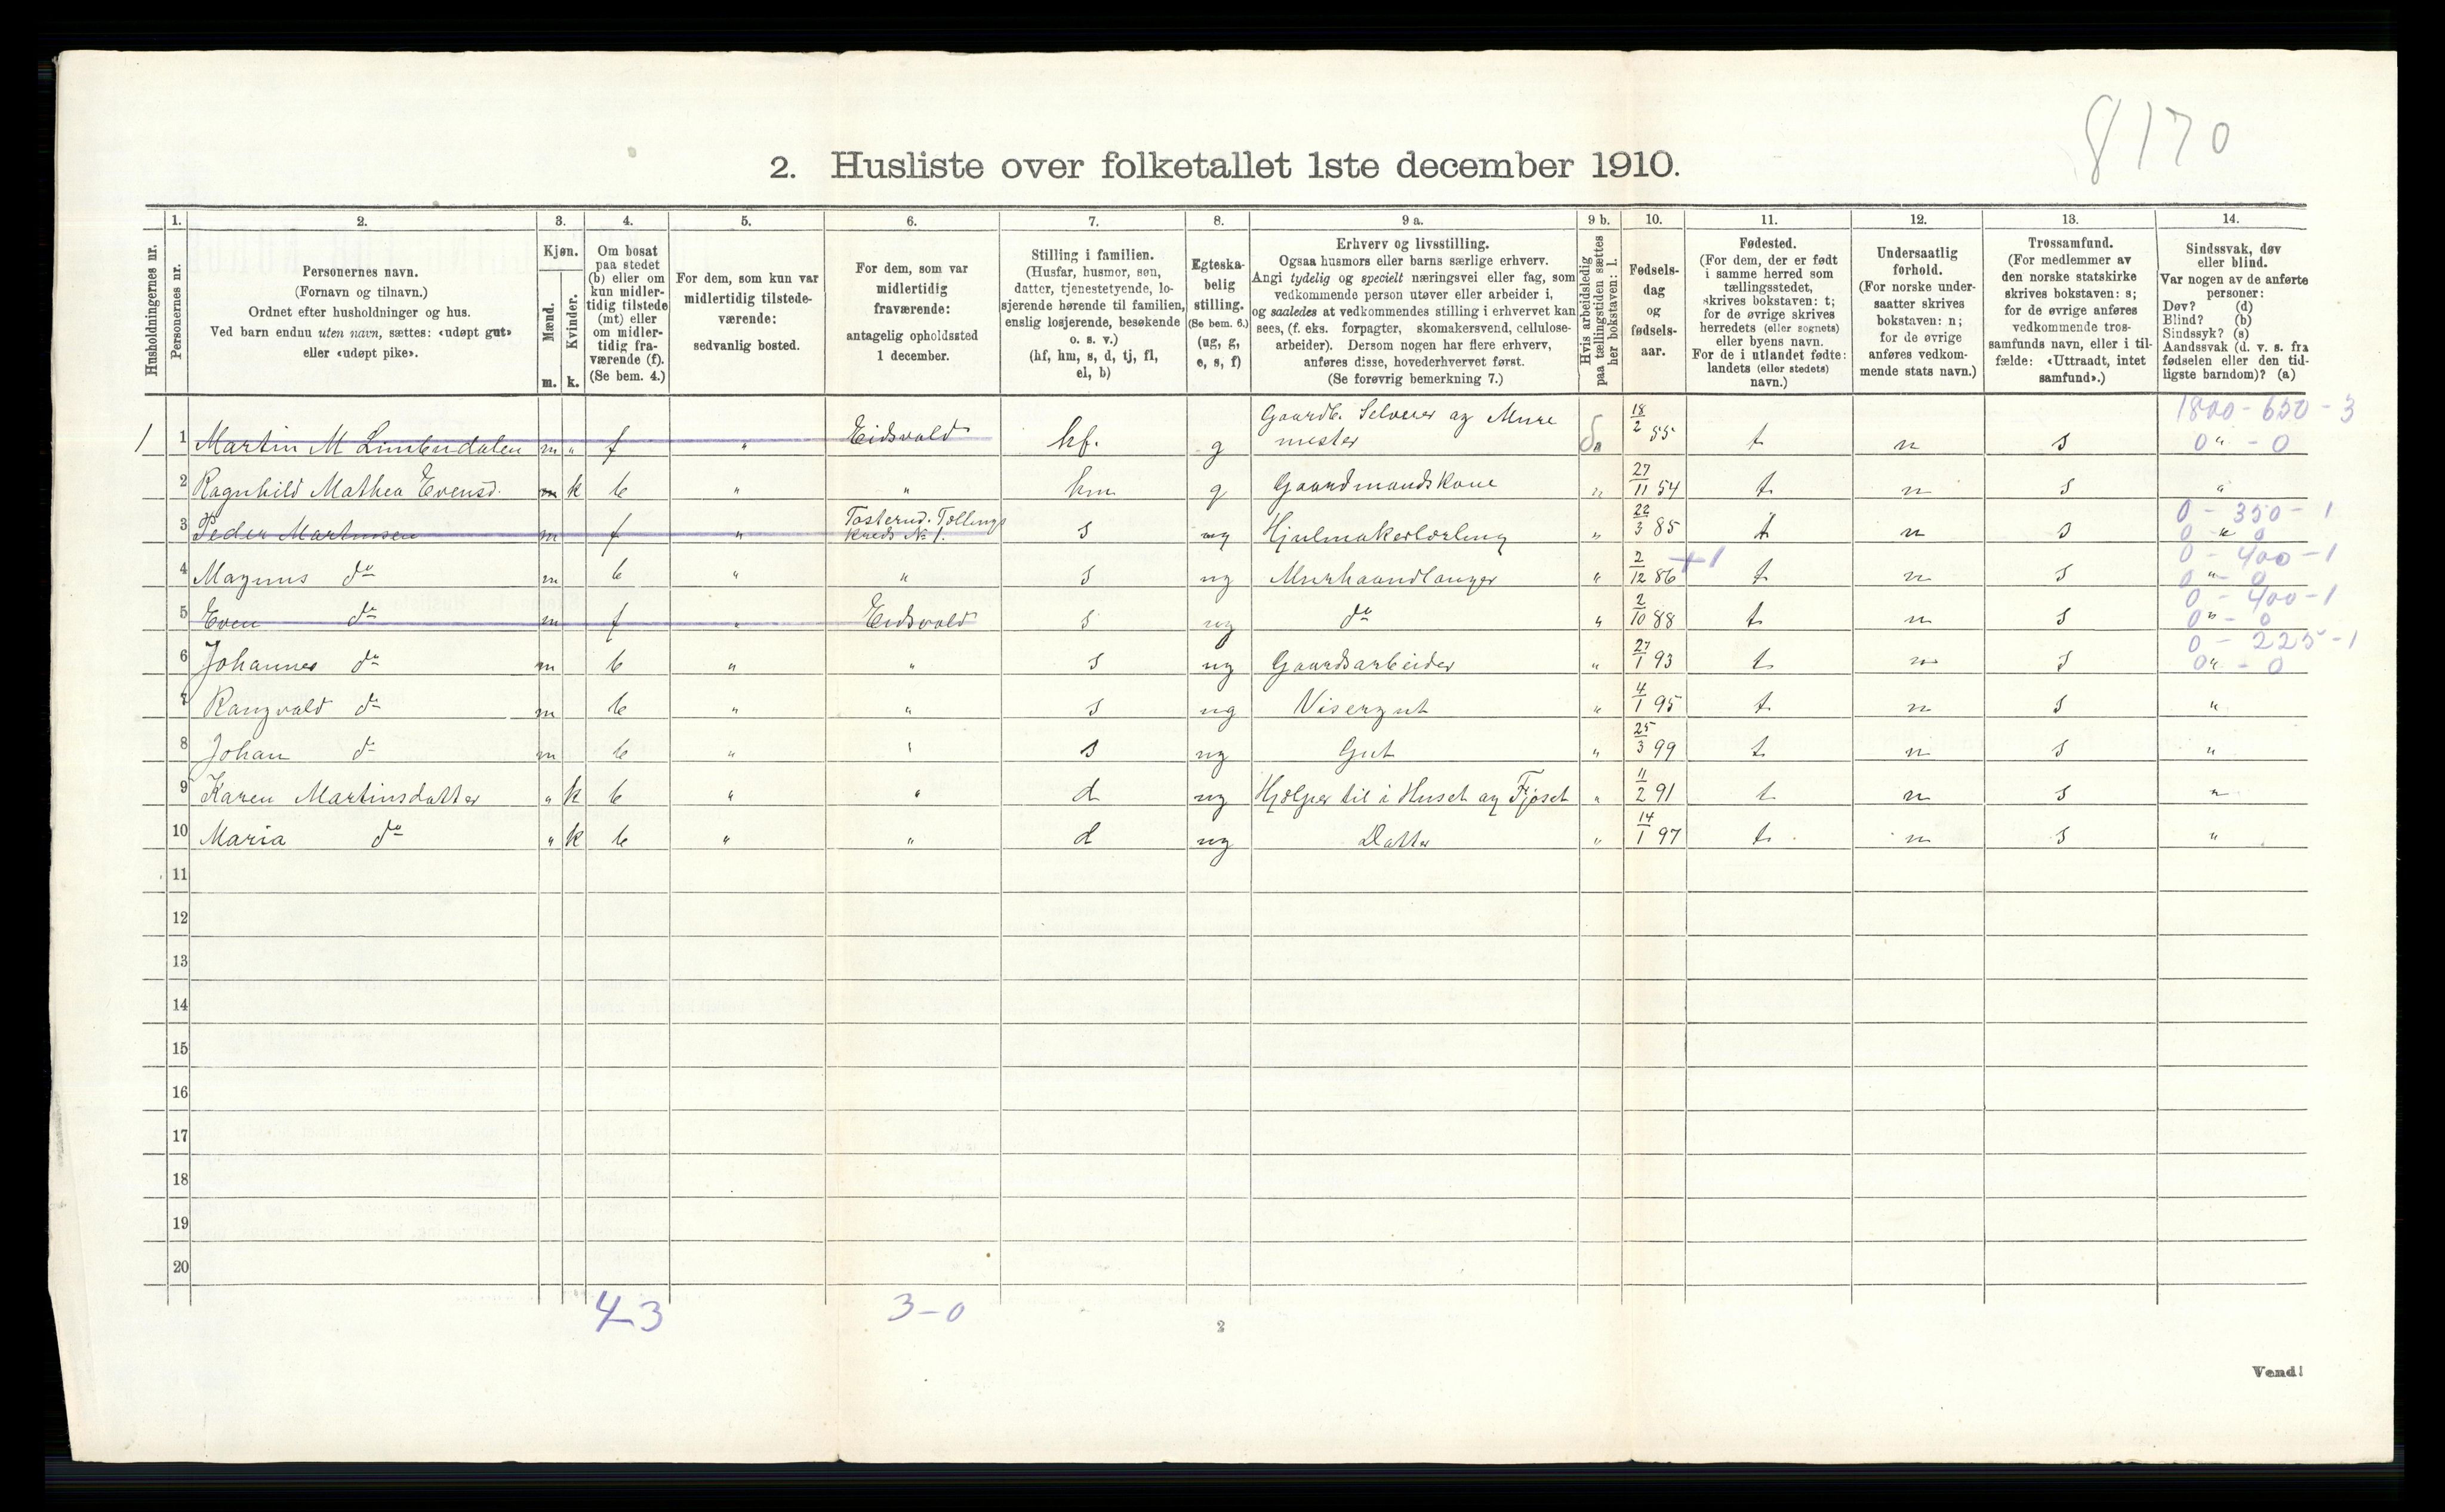 8170
2. Husliste over folketallet 1ste december 1910.
1. 2. 3. 4. 5. 6. 7. 8. 9 a. 9 b. 10. 11. 12. 13. 14.
Husholdningernes nr.
Personernes nr.
Personernes navn.
(Fornavn og tilnavn.)
Ordnet efter husholdninger og hus.
Ved barn endnu uten navn, sættes: «udøpt gut»
eller «udøpt pike».
Kjøn.
Mænd.
Kvinder.
m. k.
Om bosat
paa stedet
(b) eller om
kun midler-
tidig tilstede
(mt) eller
om midler-
tidig fra-
værende (f).
(Se bem. 4.)
For dem, som kun var
midlertidig tilstede-
værende:
sedvanlig bosted.
For dem, som var
midlertidig
fraværende:
antagelig opholdssted
1 december.
Stilling i familien.
(Husfar, husmor, søn,
datter, tjenestetyende, lo-
sjerende hørende til familien,
enslig losjerende, besøkende
o. s. v.)
(hf, hm, s, d, tj, fl,
el, b)
Egteska-
belig
stilling.
(Se bem. 6.)
(ug, g,
e, s, f)
Erhverv og livsstilling.
Ogsaa husmors eller barns særlige erhverv.
Angi tydelig og specielt næringsvei eller fag, som
vedkommende person utøver eller arbeider i,
og saaledes at vedkommendes stilling i erhvervet kan
sees, (f. eks. forpagter, skomakersvend, cellulose-
arbeider). Dersom nogen har flere erhverv,
anføres disse, hovederhvervet først.
(Se forøvrig bemerkning 7.)
Hvis arbeidsledig
paa tællingstiden sættes
her bokstaven: l.
Fødsels-
dag
og
fødsels-
aar.
Fødested.
(For dem, der er født
i samme herred som
tællingsstedet,
skrives bokstaven: t;
for de øvrige skrives
herredets (eller sognets)
eller byens navn.
For de i utlandet fødte:
landets (eller stedets)
navn.)
Undersaatlig
forhold.
(For norske under-
saatter skrives
bokstaven: n;
for de øvrige
anføres vedkom-
mende stats navn.)
Trossamfund.
(For medlemmer av
den norske statskirke
skrives bokstaven: s;
for de øvrige anføres
vedkommende tros-
samfunds navn, eller i til-
fælde: «Uttraadt, intet
samfund».)
Sindssvak, døv
eller blind.
Var nogen av de anførte
personer:
Døv? (d)
Blind? (b)
Sindssyk? (s)
Aandssvak (d. v. s. fra
fødselen eller den tid-
ligste barndom)? (a)
Gaardb. Selveier og Mure 18/2 1800 - 650 - 3
1 1 Martin M Limbudalen m " f " Eidsvold hf. g mester 55 t n s 0 " - 0
2 Ragnhild Mathea Evensd. m k b " " hm g Gaardmandskone " 27/11 54 t n s "
Tosterud. Tællings 0 - 350 - 1
3 Peder Martinsen m f " kreds No 1. s ug Hjulmakerlærling " 22/3 85 t n s 0 " 0
+1 0 - 400 - 1
4 Magnus do m b " " s ug Murhaandlanger " 2/12 86 t n s 0 " 0
0 - 400 - 1
5 Even do m f " Eidsvold s ug do " 2/10 88 t n s 0 " - 0
0 - 225 - 1
6 Johannes do m b " " s ug Gaardsarbeider " 27/1 93 t n s 0 " - 0
7 Rangvald do m b " " s ug Visergut " 4/1 95 t n s "
8 Johan do m b " " s ug Gut " 25/3 99 t n s "
9 Karen Martinsdatter " k b " " d ug Hjælper til i Huset og Fjøset " 11/2 91 t n s "
10 Maria do " k b " " d ug Datter " 14/1 97 t n s "
11
12
13
14
15
16
17
18
19
20
4-3 3-0
2
Vend!